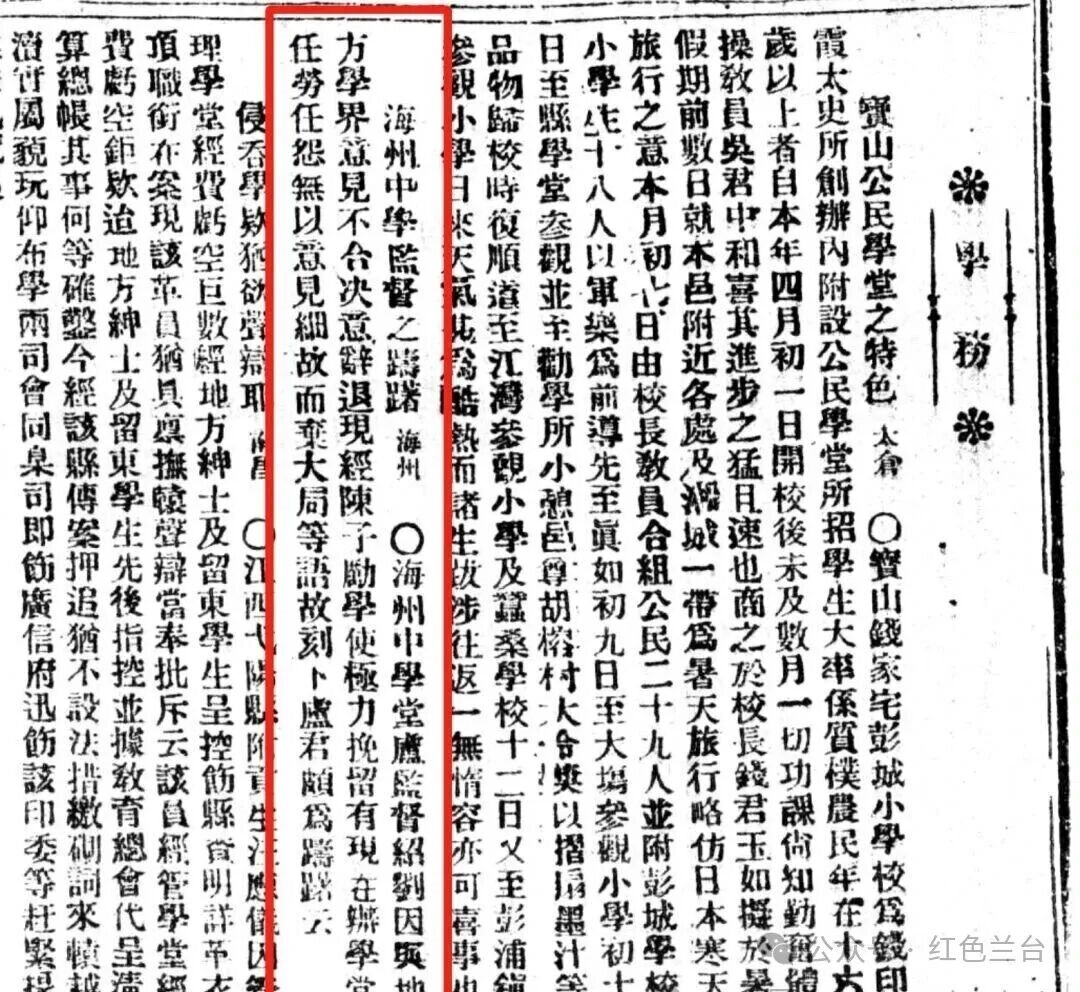 學務
寶山公民學堂之特色 太倉 〇寶山錢家宅彭城小學校爲錢印
霞太史所創辦內附設公民學堂所招學生大率係質樸農民年在十六
歲以上者自本年四月初一日開校後未及數月一切功課尙知勤奮體
操敎員吳君中和喜其進步之猛且速也商之於校長錢君玉如擬於暑
假期前數日就本邑附近各處及淞城一帶爲暑天旅行略仿日本寒天
旅行之意本月初九日由校長敎員合組公民二十九人並附彭城學校
小學生十八人以軍樂爲前導先至眞如初九日至大塲參觀小學初十
日至縣學堂參觀並至勸學所小憩邑尊胡榕村大令奬以摺扇墨汁等
品物歸校時復順道至江灣參觀小學及蠶桑學校十二日又至彭浦鎭
參觀小學日來天氣甚爲酷熱而諸生跋涉往返一無惰容亦可喜事也
海州中學監督之躊躇 海州 〇海州中學堂盧監督紹劉因與地
方學界意見不合决意辭退現經陳子勵學使極力挽留有現在辦學堂
任勞任怨無以意見細故而棄大局等語故刻下盧君頗爲躊躇云
侵吞學欵猶欲聲辯耶 南昌 〇江西弋陽縣附貢生汪應儀因經
理學堂經費虧空巨數經地方紳士及留東學生呈控飭縣查明詳革衣
頂職銜在案現該革員猶具稟撫轅聲辯當奉批斥云該員經管學堂經
費虧空鉅欵迨地方紳士及留東學生先後指控並據敎育總會代呈淸
算總帳其事何等確鑿今經該縣傳案押追猶不設法措繳砌詞來轅越
瀆實屬藐玩仰布學兩司會同臬司即飭廣信府迅飭該印委等赶緊提
公众号 · 红色兰台